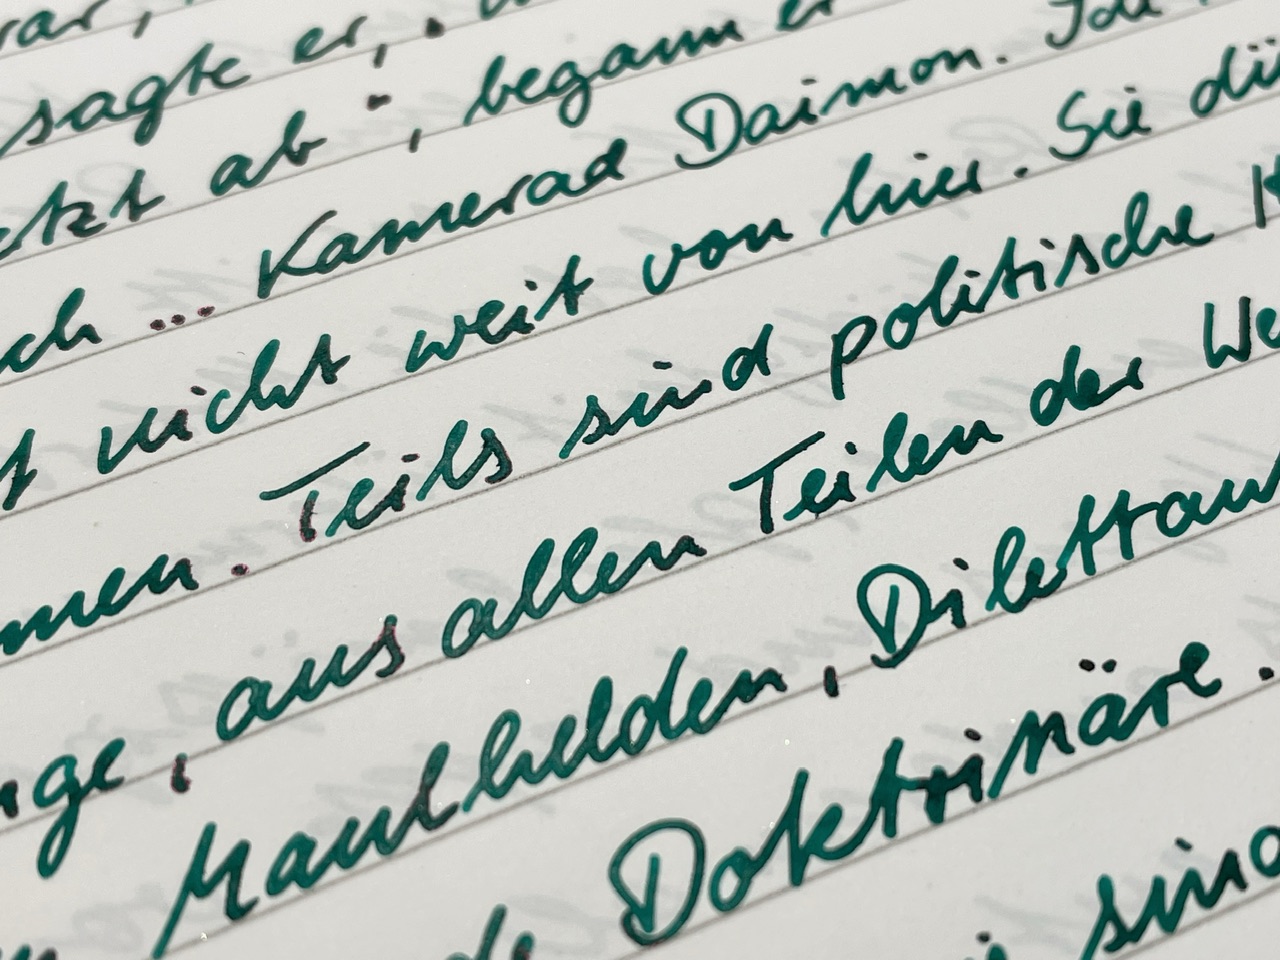 sagte er,
ab", begann er
... Kamerad Daimon. Ich
nicht weit von hier. Sie
. Teils sind politische
, aus allen Teilen der
Maulhelden, Dilettan
Doktrinäre.